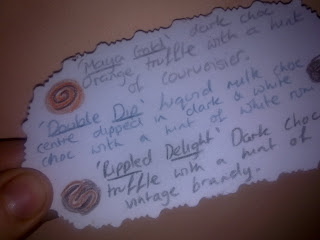 'Maya Gold' dark choc
Orange truffle with a hint
of Courvoisier.
'Double Dip' liquid milk choc
centre dipped in dark & white
choc with a hint of white rum
'Rippled Delight' Dark choc
truffle with a hint of
vintage brandy.